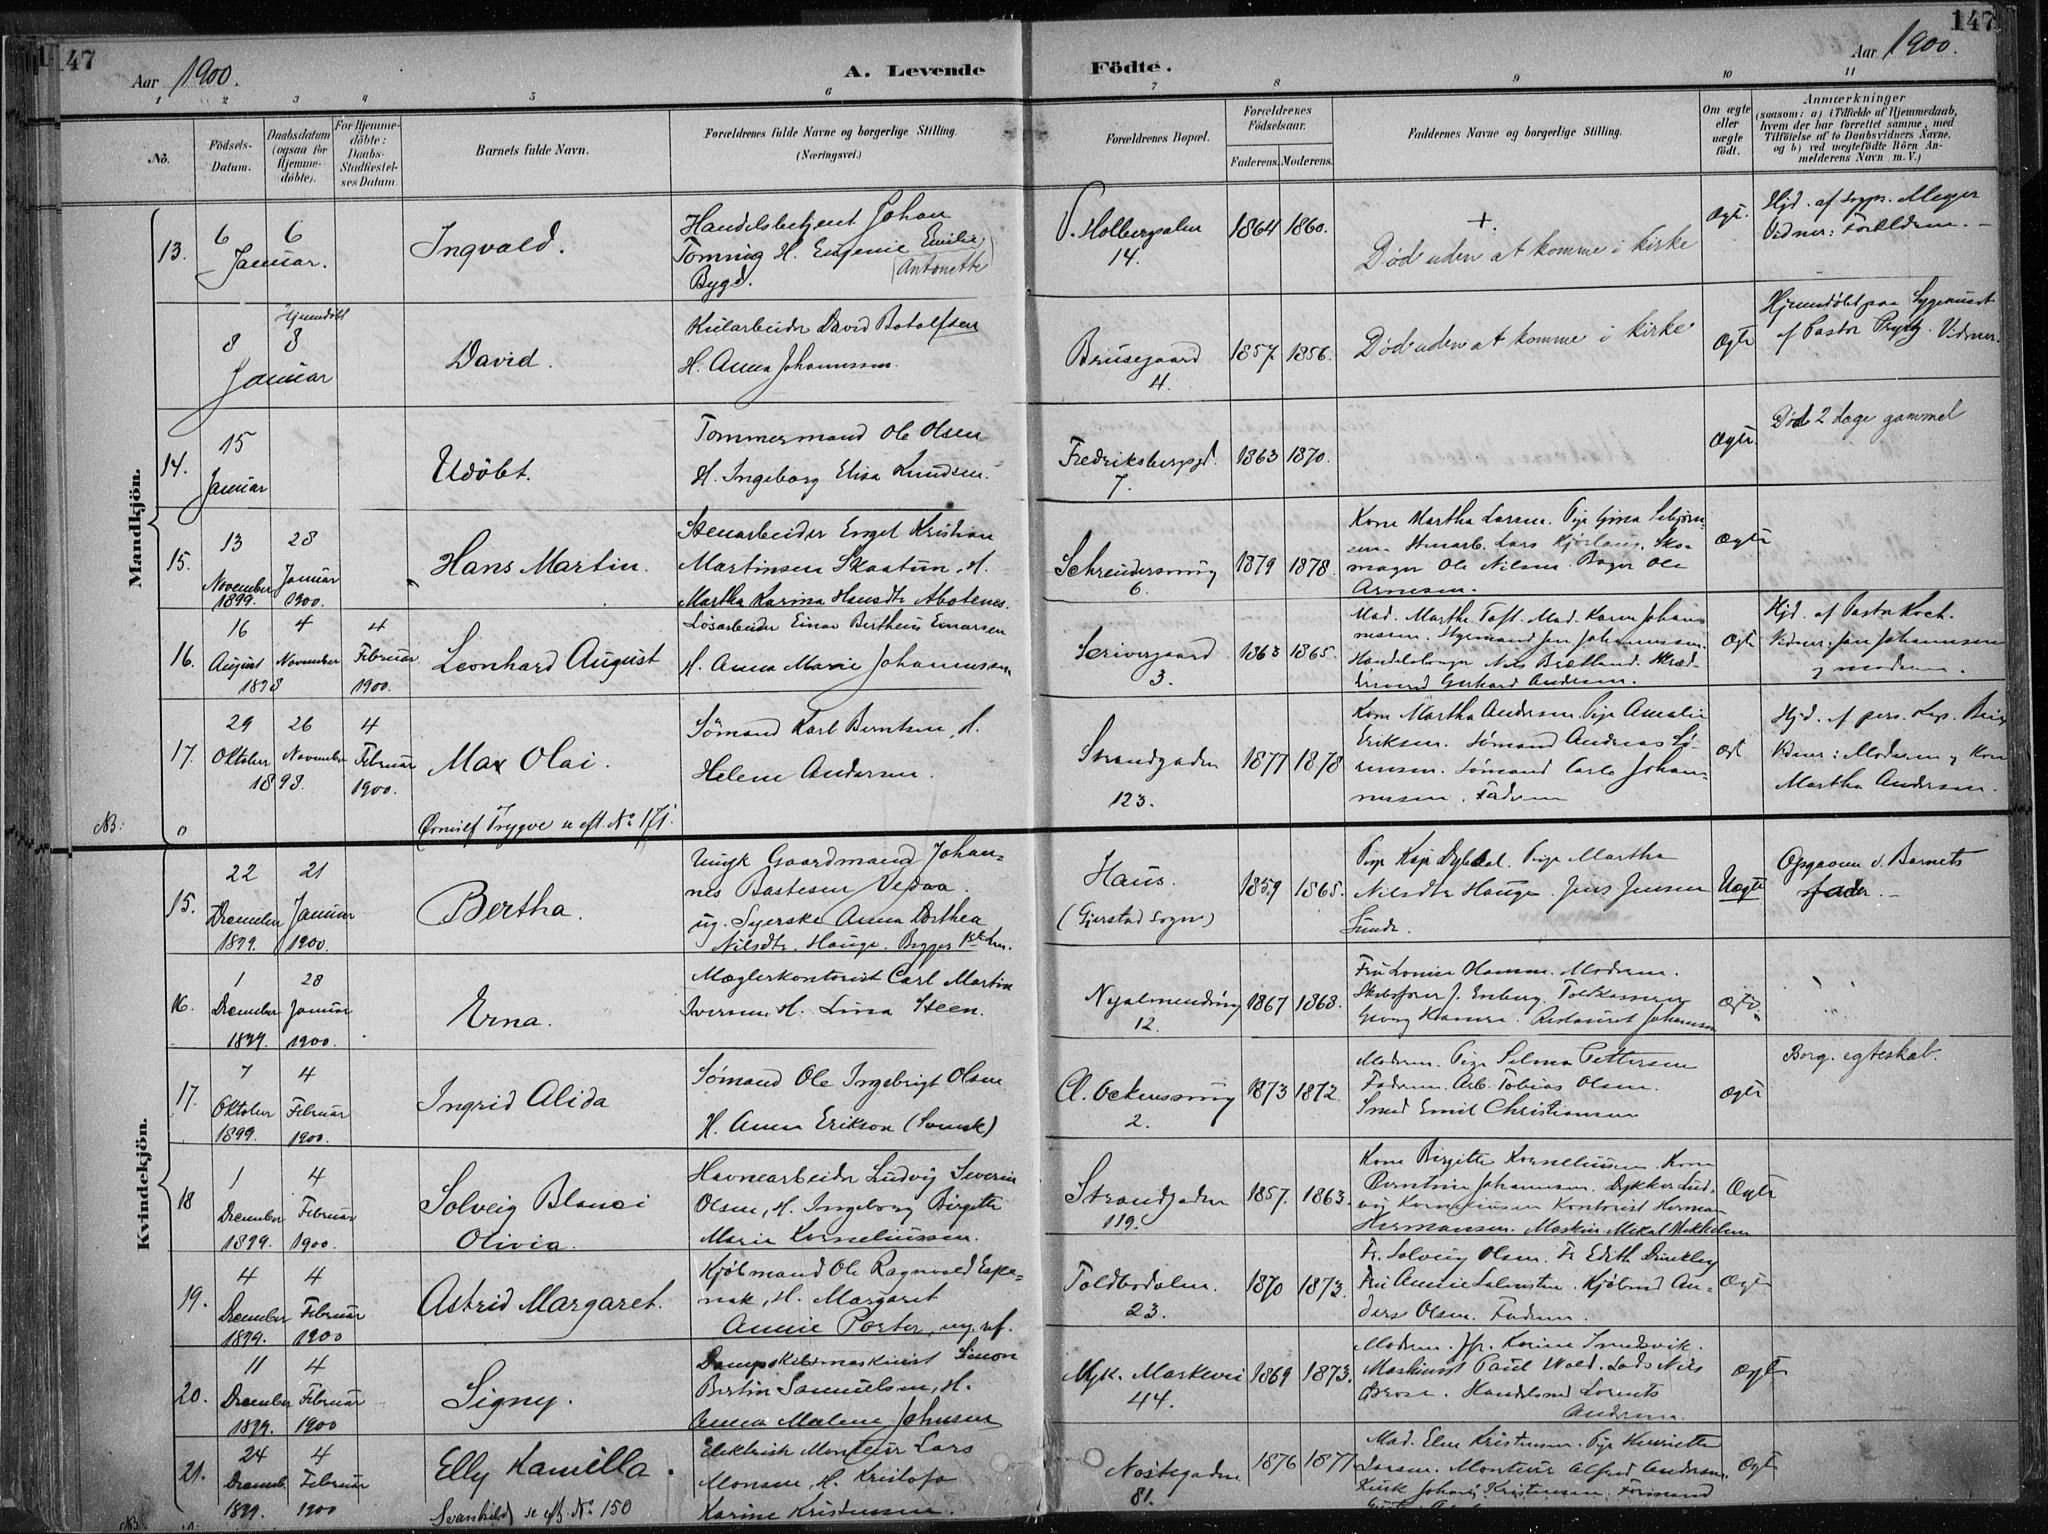 147
147
Aar 1900.
A. Levende
Födte.
Aar 1900.
1 2 3 4 5 6 7 8 9 10 11
No.
Födsels-
Datum.
Daabsdatum
(ogsaa for
Hjemme-
döbte).
For Hjemme-
döbte:
Daabs-
Stadfæstel-
ses Datum.
Barnets fulde Navn.
Forældrenes fulde Navne og borgerlige Stilling.
(Næringsvei.)
Forældrenes Bopæl.
Forældrenes
Födselsaar.
Faderens. Moderens.
Faddernes Navne og borgerlige Stilling.
Om ægte
eller
uægte
født.
Anmærkninger
(saasom: a) i Tilfælde af Hjemmedaab,
hvem der har forrettet samme, med
Tilföielse af to Daabsvidners Navne,
og b) ved uægtefödte Börn An-
melderens Navn m. V.)
Mandkjön.
13.
6 6
Januar.
Ingvald.
Handelsbetjent Johan
Tonning H. Eugenie Emilie
Antonette
Bygd.
V. Holbergsalm
14.
1864 1860.
+
Død uden at komme i kirke
Ægte.
Hjd. af Meyer
Vidner: Forældrene.
8 Hjemdøbt 8
Januar
David.
Kularbeider David Botolfsen
H. Anna Johannessen.
Brusegaard
4.
1857. 1856.
Død uden at komme i kirke
Ægte
Hjemdøbt paa Sygehuset
af Pastor Vidner.
14.
15
Januar
Udöbt.
Tømmermand Ole Olsen
H. Ingeborg Elisa Knudsen.
Fredriksbergsgd.
7.
1863 1870.
Ægte.
Død 2 dage gammel
15.
13 28
November Januar
1899. 1900.
Hans Martin.
Stenarbeider Engel Kristian
Martinsen Skaatun, H.
Martha Karina Hansdtr Abotenes.
Schreudersmug
6.
1879 1878.
Kone Martha Larsen. Pige Gina
Stenarb. Lars Sko-
mager Ole Nilsen. Bager Ole
Arnesen.
Ægte
16.
16 4 4
August November Februar
1898 1900.
Leonhard August
Løsarbeider Einar Bertheus Einarsen
H. Anna Marie Johannessen
Scrivergaard
3.
1863 1865.
Mad. Marthe Toft. Mad. Karen Johan-
nessen. Styrmand Jan Johannessen.
Handelsborger Nils Brætland. Skræd-
dersvend Gerhard Andersen.
Ægte
Hjd. af Pastor Koch.
Vidner: Jan Johannessen
& moderen.
17.
29 26 4
Oktober November Februar
1898. 1900.
Max Olai.
Sømand Karl Berntsen, H.
Helene Andersen.
Strandgaden
123.
1877 1878
Kone Martha Andersen. Pige Amalie
Eriksen. Sømand Andreas Sø-
rensen. Sømand Carlo Johan-
nessen. Faderen
Ægt
Hjd. af pers. Kap.
Vidner: Moderen og Kone
Martha Andersen.
NB: 0
Ørnulf Trygve se eft. No 171.
Kvindekjön.
15.
22 21
December Januar
1899. 1900.
Bertha.
Ungk Gaardmand Johan-
nes Bastesen Vedaa.
ug. Syerske Anna Dorthea
Nilsdtr. Hauge. Begges 1ste barn.
Haus.
(Gjerstad Sogn)
1859 1865.
Pige Kaja Dybldal. Pige Martha
Nilsdtr Hauge. Jens Jensen
Sunde.
Uægte
Opgaven v. Barnets
fader.
16.
1 28
December Januar
1899. 1900.
Erna.
Mæglerkontorist Carl Martin
Iversen, H. Lina Steen.
Nyalmending
12.
1867 1868.
Fru Lovise Hansen. Moderen.
Skibsfører J. Enberg. Toldkasserer
Georg Hansen. Restauret Johansen
Ægte
17.
7 4
Oktober Februar
1899. 1900.
Ingrid Alida
Sømand Ole Ingebrigt Olsen
H. Anna Erikson (Svensk)
Cl. Ockensmug
2.
1873 1872.
Moderen. Pige Selma Pettersen
Faderen. Arb. Tobias Olsen.
Smed Emil Christiansen
Ægte
Borg. egteskab.
18
1 4
December Februar
1899. 1900.
Solveig Blanci
Olivia.
Havnearbeider Ludvig Severin
Olsen, H. Ingeborg Birgitte
Marie Korneliussen.
Strandgaden
119.
1857. 1863.
Kone Birgitte Korneliussen. Kone
Berntine Johannesen. Dykker Lud-
vig Korneliussen Kontorist Herman
Hermansen. Maskin. Mikal Mikkelsen
Ægte
19.
4 4
December Februar
1899. 1900
Astrid Margaret.
Kjöbmand Ole Ragnvald Espe-
nak, H. Margaret
Annie Porter, ug. ref.
Toldbodalm.
23.
1870 1873.
Fr. Solveig Olsen. Fr Edith Brinkley
Fru Annie Salvesen. Kjøbmd An-
ders Olsen. Faderen.
Ægte
20.
11 4
December Februar
1899. 1900
Signy.
Dampskibsmaskinist Simon
Bertin Samuelsen, H.
Anna Malene Johnsen
Myk. Markevei
44.
1869 1873.
Moderen. Jfr. Karine Smedsvik.
Maskinist Paul Wold. Lods Nils
Handelsmd Lorents
Andersen
Ægte
21.
24 4
Decemb. Februar
1899. 1900
Elly Kamilla.
Elektrisk Montør Lars
Monsen, H. Kristofa
Karine Kristensen.
Nøstegaden
81.
1876 1877
Mad. Elen Kristensen. Pige Henriette
Larsen. Montør Alfred Andersen.
Kusk Johan Kristensen. Formand
Ægte
NB
Svanhild se eft. No 150